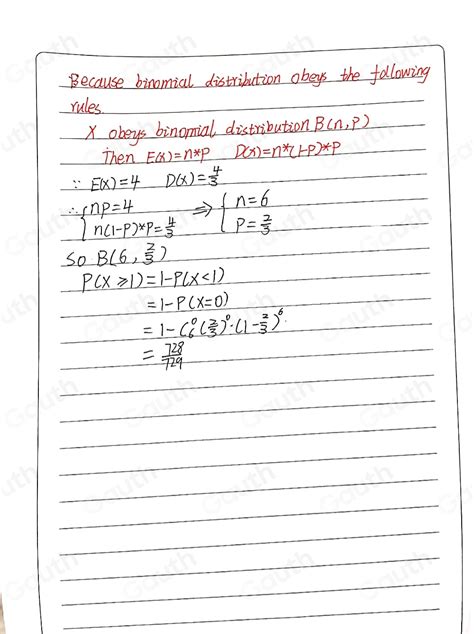 Because binomial distribution obeys the following
rules.
X obeys binomial distribution B(n,P)
Then E(x)=n*P D(x)=n*(1-P)*P
∵ E(x)=4 D(x)=4/3
∴ { nP=4 ⇒ { n=6
n(1-P)*P=4/3 P=2/3
So B(6, 2/3)
P(X≥1)=1-P(X<1)
=1-P(X=0)
=1-C₆⁰(2/3)⁰·(1-2/3)⁶
=728/729
Gauth